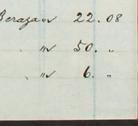 Berazan 22.08
" 50. "
" 6. "